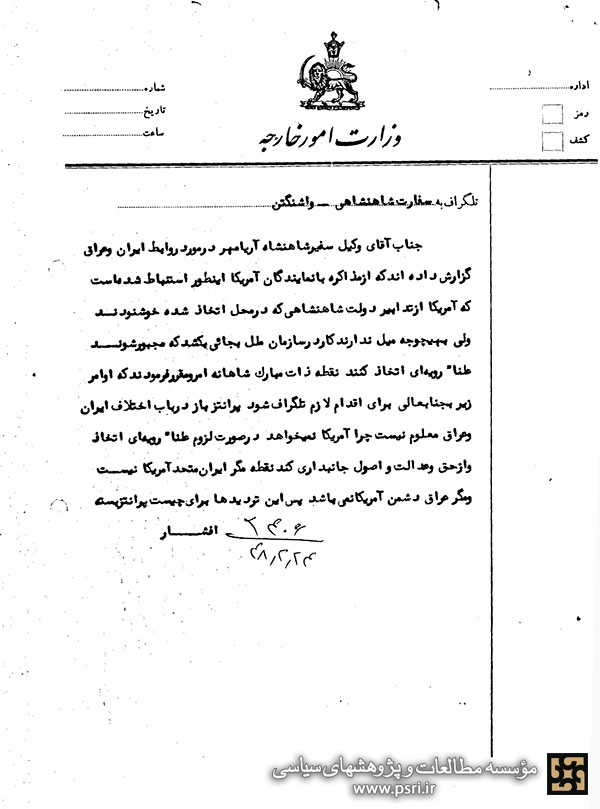 اداره
رمز
کشف
شماره
تاریخ
ساعت
وزارت امور خارجه
تلگراف به سفارت شاهنشاهی ــ واشنگتن
جناب آقای وکیل سفیر شاهنشاه آریامهر در مورد روابط ایران و عراق
گزارش داده اند که از مذاکره با نمایندگان آمریکا اینطور استنباط شده است
که آمریکا از تدابیر دولت شاهنشاهی که در محل اتخاذ شده خوشنودند
ولی بهیچوجه میل ندارند کار در سازمان ملل بجائی بکشد که مجبور شوند
علنا" رویه‌ای اتخاذ کنند نقطه ذات مبارک شاهانه امر و مقرر فرمودند که اوامر
زیر بجنابعالی برای اقدام لازم تلگراف شود پرانتز باز در باب اختلاف ایران
و عراق معلوم نیست چرا آمریکا نمیخواهد در صورت لزوم علنا" رویه‌ای اتخاذ
و از حق و عدالت و اصول جانبداری کند نقطه مگر ایران متحد آمریکا نیست
ومگر عراق دشمن آمریکا نمی باشد پس این تردیدها برای چیست پرانتز بسته
افشـــار ۳۴۰۶
۴۸/۲/۲۴
مؤسسه مطالعات و پژوهشهای سیاسی
www.psri.ir